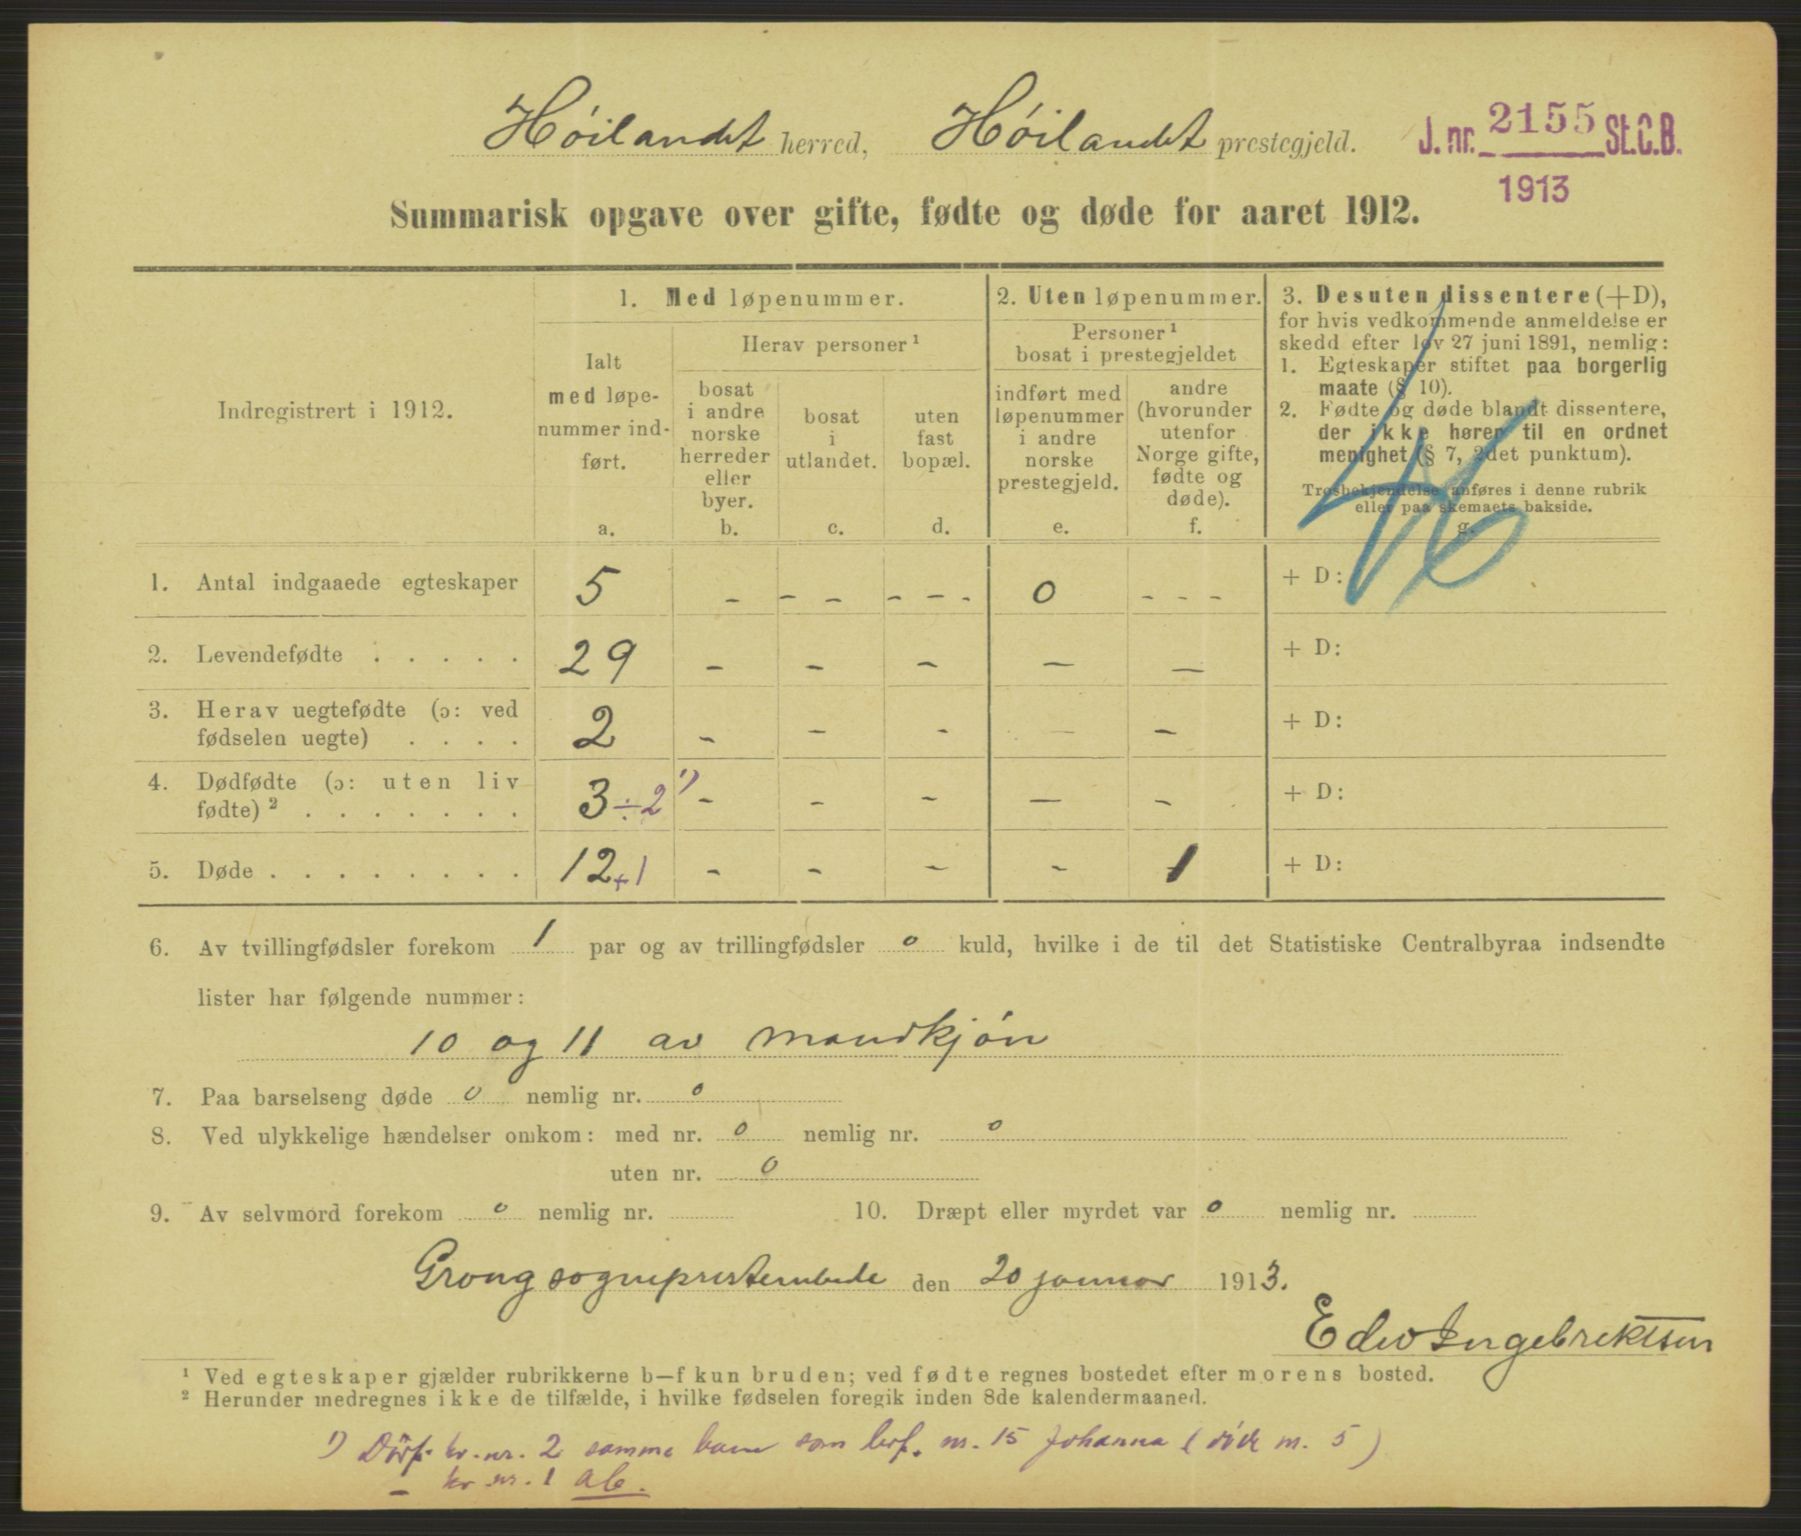 Høilandet herred, Høilandet prestegjeld.
J. nr. 2155 St.C.B.
1913
Summarisk opgave over gifte, fødte og døde for aaret 1912.
Indregistrert i 1912.
1. Med løpenummer.
Ialt
med løpe-
nummer ind-
ført.
a.
Herav personer ¹
bosat
i andre
norske
herreder
eller
byer.
b.
bosat
i
utlandet.
c.
uten
fast
bopæl.
d.
2. Uten løpenummer.
Personer ¹
bosat i prestegjeldet
indført med
løpenummer
i andre
norske
prestegjeld.
e.
andre
(hvorunder
utenfor
Norge gifte,
fødte og
døde).
f.
3. Desuten dissentere (+D),
for hvis vedkommende anmeldelse er
skedd efter lov 27 juni 1891, nemlig:
1. Egteskaper stiftet paa borgerlig
maate (§ 10).
2. Fødte og døde blandt dissentere,
der ikke hører til en ordnet
menighet (§ 7, 2det punktum).
Trosbekjendelse anføres i denne rubrik
eller paa skemaets bakside.
g.
1. Antal indgaaede egteskaper 5 - - - - - - 0 - - - + D:
2. Levendefødte . . . . . 29 - - - - - + D:
3. Herav uegtefødte (ɔ: ved
fødselen uegte) . . . . 2 - - - - - + D:
4. Dødfødte (ɔ: uten liv
fødte) ² . . . . . . . 3 ÷ 2 ¹) - - - - - + D:
5. Døde . . . . . . . . 12 + 1 - - - - 1 + D:
6. Av tvillingfødsler forekom 1 par og av trillingfødsler 0 kuld, hvilke i de til det Statistiske Centralbyraa indsendte
lister har følgende nummer:
10 og 11 av mandkjøn
7. Paa barselseng døde 0 nemlig nr. 0
8. Ved ulykkelige hændelser omkom: med nr. 0 nemlig nr. 0
uten nr. 0
9. Av selvmord forekom 0 nemlig nr. 10. Dræpt eller myrdet var 0 nemlig nr.
Grong sogneprestembede den 20 januar 1913.
Edv Ingebrektsen
¹ Ved egteskaper gjælder rubrikkerne b—f kun bruden; ved fødte regnes bostedet efter morens bosted.
² Herunder medregnes ikke de tilfælde, i hvilke fødselen foregik inden 8de kalendermaaned.
¹) Dørf. kv. nr. 2 samme barn som nr. 15 Johanna (død nr. 5)
- kv. nr. 1 ab.